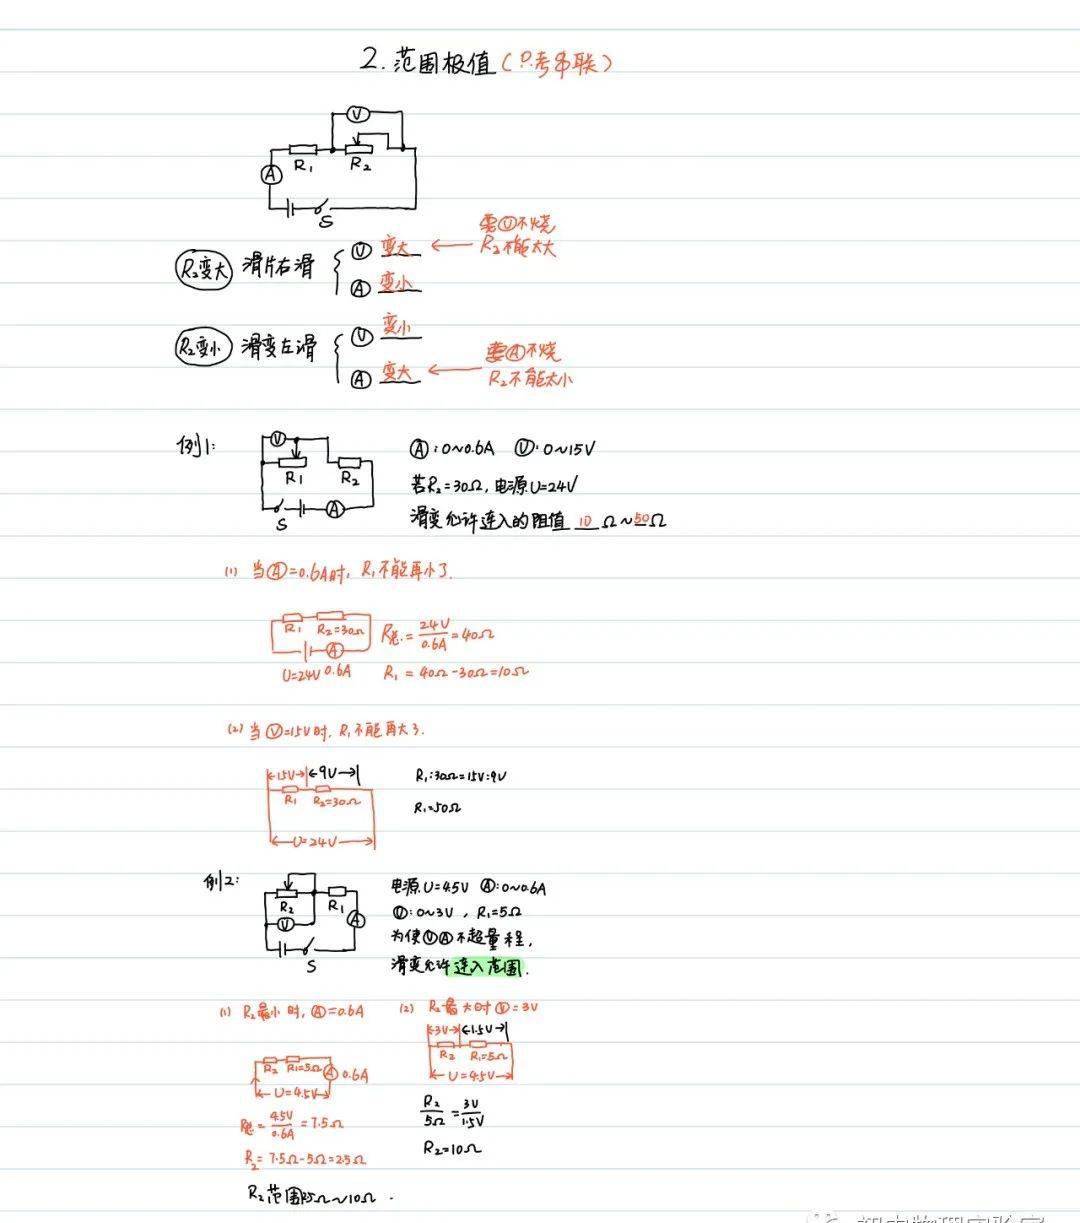 2.范围极值(只考串联)
V
A R₁ R₂
S
R₂变大 滑片右滑 { V 变大 ← 要V不烧 R₂不能太大
A 变小
R₂变小 滑变左滑 { V 变小
A 变大 ← 要A不烧 R₂不能太小
例1:
V R₁ R₂ S A
A:0~0.6A V:0~15V
若R₂=30Ω,电源U=24V
滑变允许连入的阻值 10 Ω~50Ω
(1) 当A=0.6A时, R₁不能再小了.
R₁ R₂=30Ω A
U=24V 0.6A
R总=24V/0.6A=40Ω
R₁=40Ω-30Ω=10Ω
(2) 当V=15V时, R₁不能再大了.
15V 9V
R₁ R₂=30Ω
U=24V
R₁:30Ω=15V:9V
R₁=50Ω
例2:
R₂ R₁ V A S
电源U=4.5V A:0~0.6A
V:0~3V, R₁=5Ω
为使VA不超量程,
滑变允许连入范围.
(1) R₂最小时, A=0.6A
R₂ R₁=5Ω A 0.6A
U=4.5V
R总=4.5V/0.6A=7.5Ω
R₂=7.5Ω-5Ω=2.5Ω
(2) R₂最大时V=3V
3V 1.5V
R₂ R₁=5Ω
U=4.5V
R₂/5Ω=3V/1.5V
R₂=10Ω
R₂范围2.5Ω~10Ω.